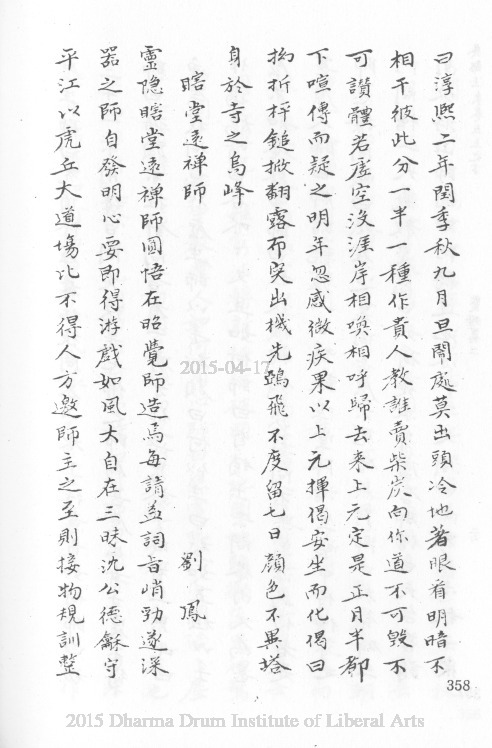 曰淳熈二年閏季秋九月旦閙處莫出頭冷地著眼看明暗不
相干彼此分一半一種作貴人教誰賣柴炭向你道不可毀不
可讚體若虛空沒涯岸相喚相呼歸去來上元定是正月半都
下喧傳而疑之明年忽感微疾果以上元揮偈安坐而化偈曰
拗折枰鎚掀翻露布突出機先鵶飛不度留七日顏色不異塔
身於寺之烏峰
瞎堂遠禪師 劉鳳
靈隐瞎堂遠禪師圓悟在昭覺師造焉每請益詞旨峭勁遂深
器之師自發明心要即得游戲如風大自在三昧沈公德龢守
平江以虎丘大道塲比不得人方邀師主之至則接物規訓整
358
2015-04-17
2015 Dharma Drum Institute of Liberal Arts